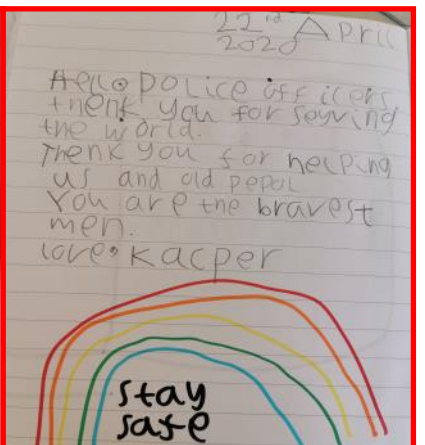 22rd April
2020
Hello police officers
thenk you for seyving
the world.
Thenk you for helping
us and old pepol
You are the bravest
men.
love Kacper
stay
safe